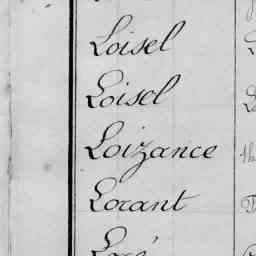 Loisel
Loisel
Loizance
Lorant
Loré